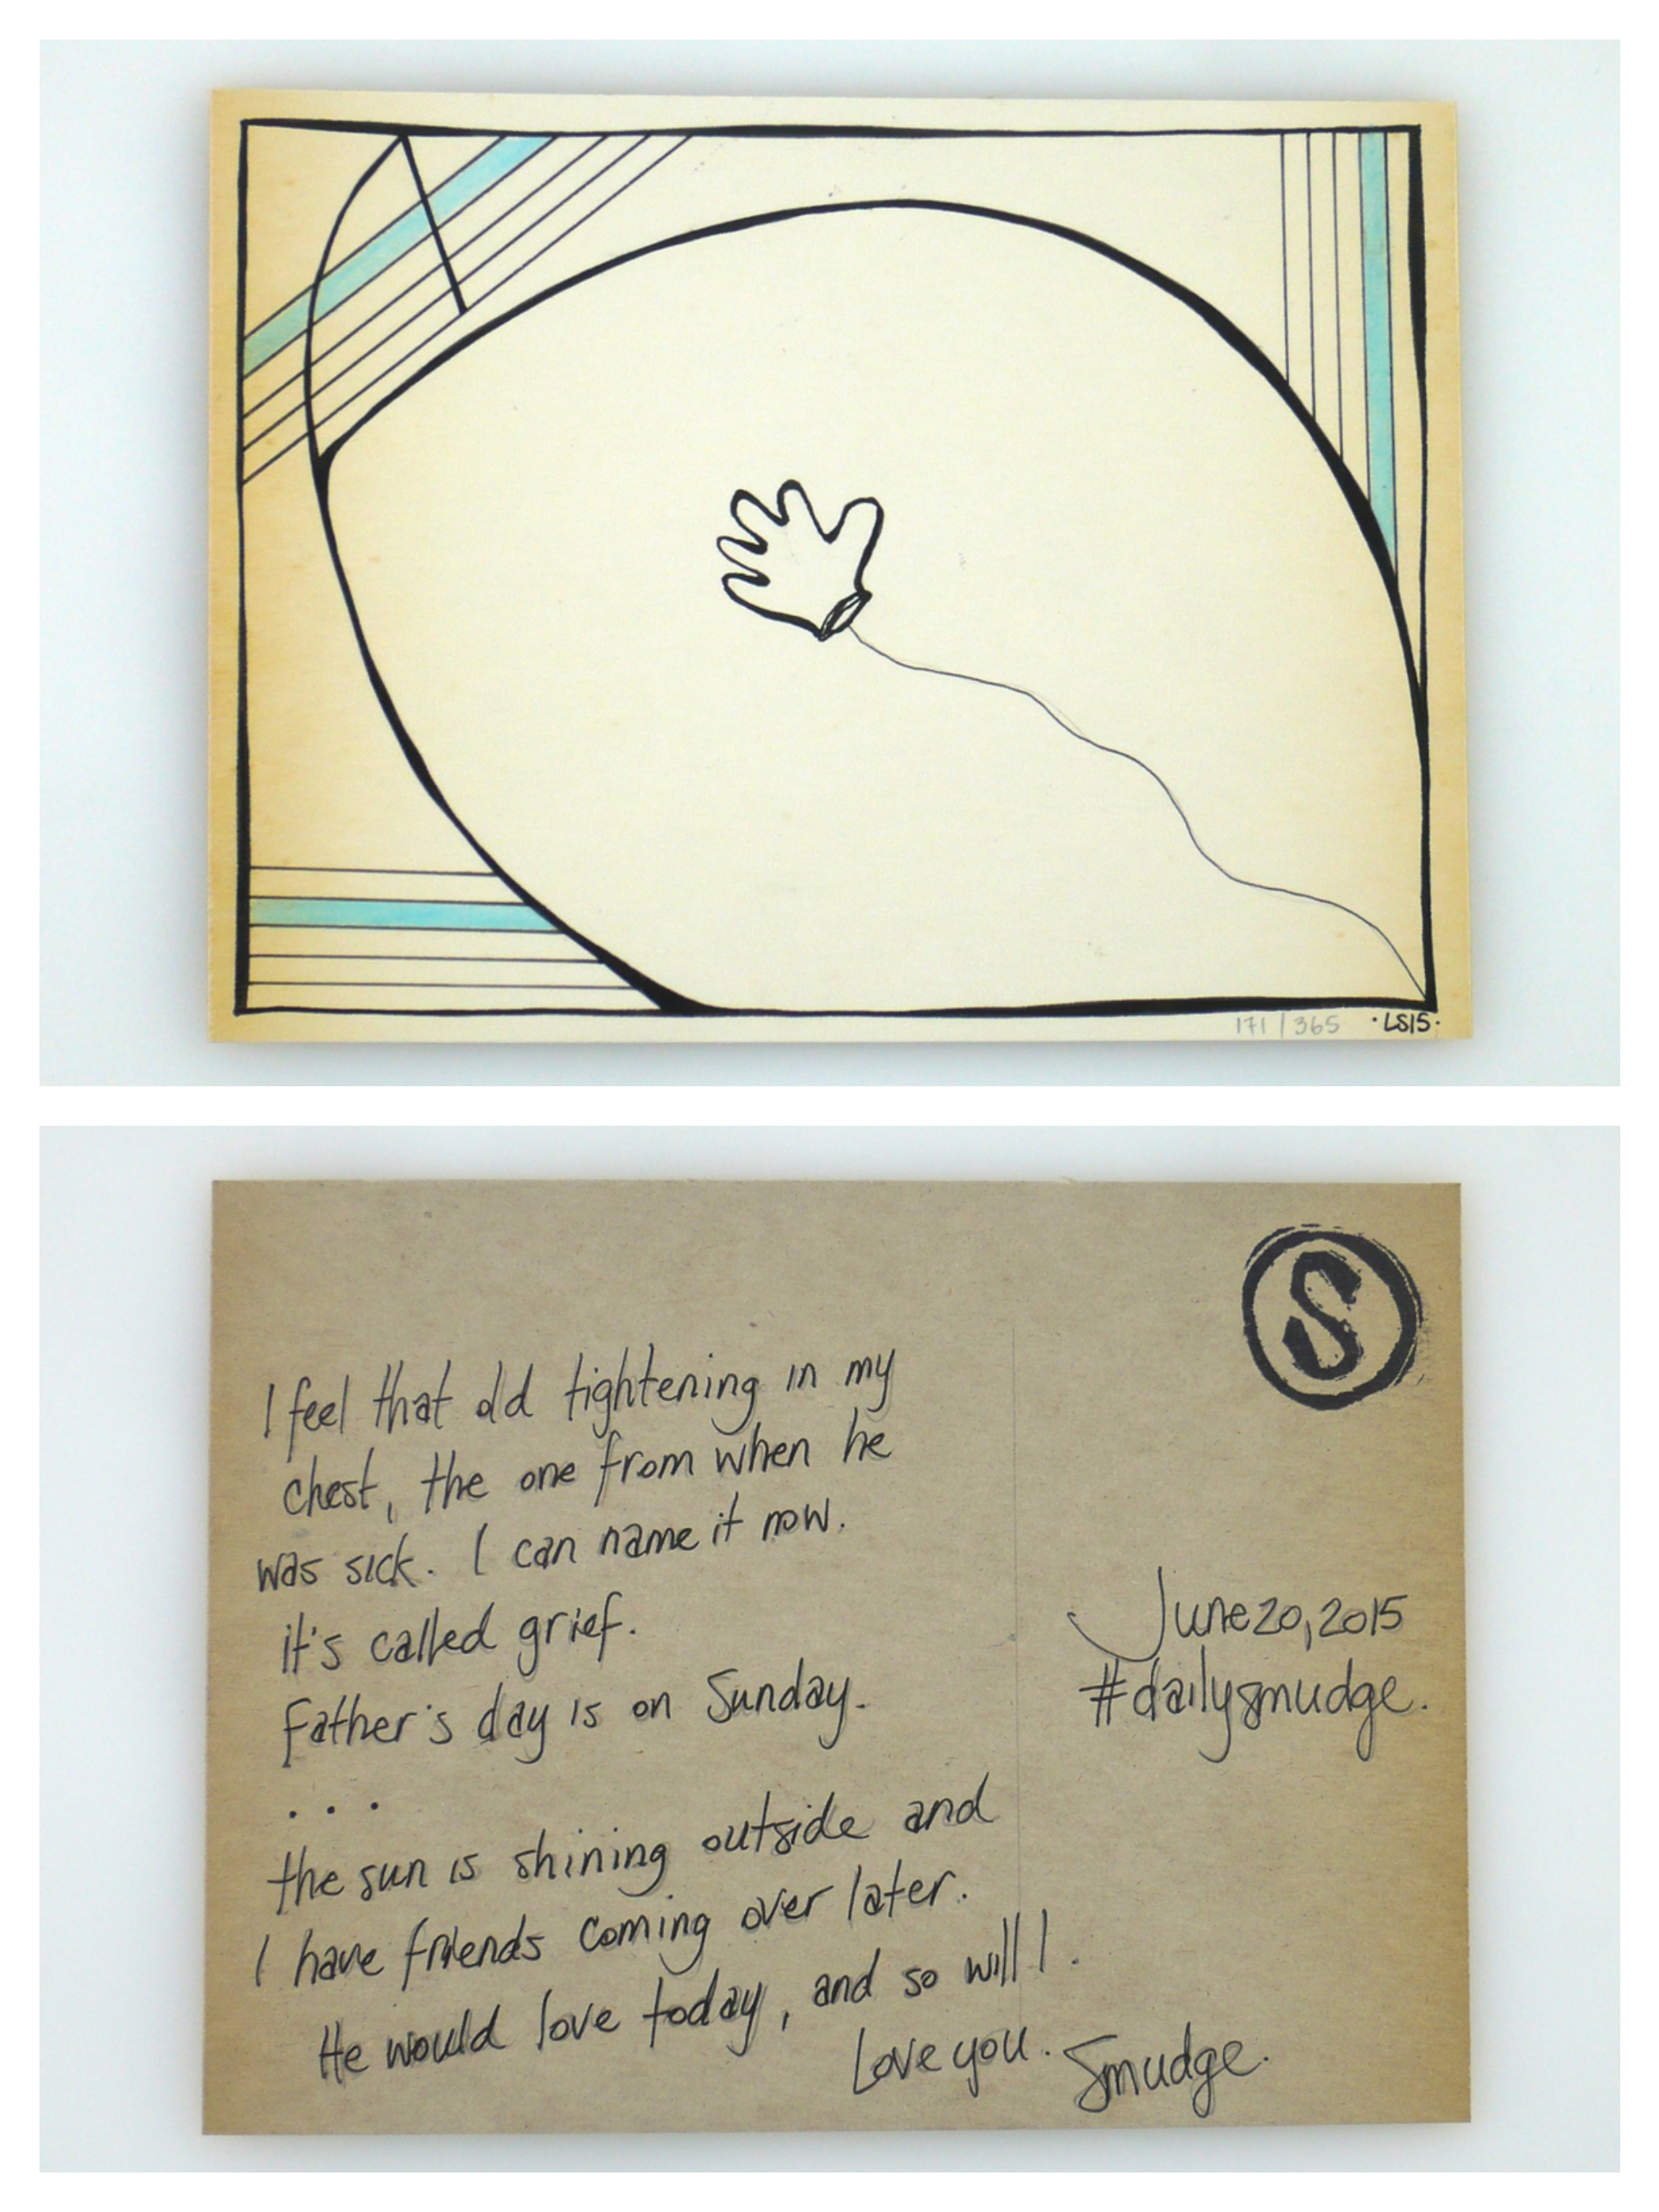 171/365 ·LS15·
S
I feel that old tightening in my
chest, the one from when he
was sick. I can name it now.
it's called grief.
Father's day is on Sunday.
...
the sun is shining outside and
I have friends coming over later.
He would love today, and so will I.
Love you. Smudge.
June 20, 2015
#dailysmudge.